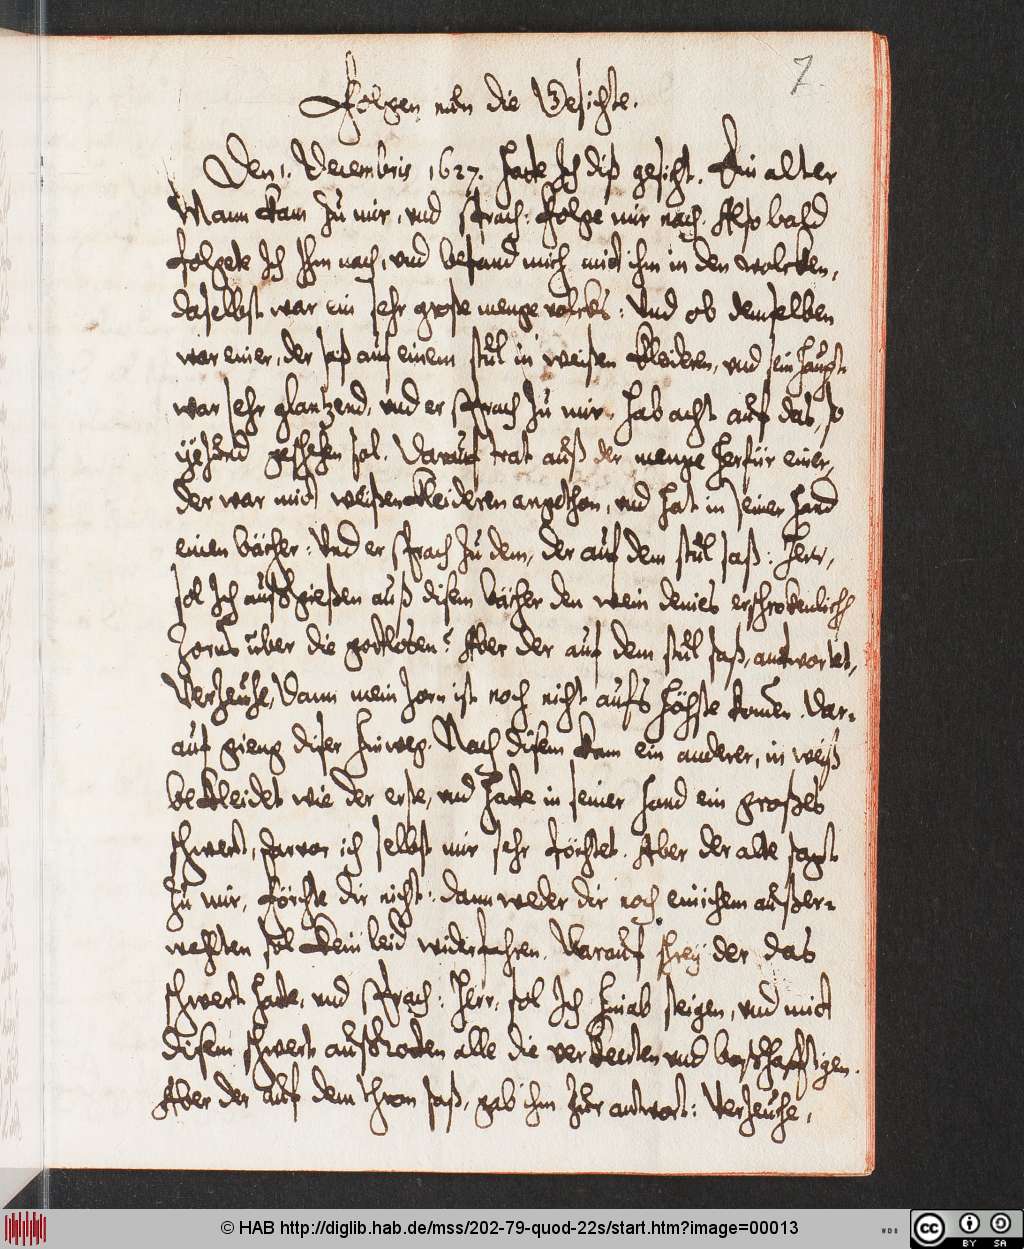 7
Folgen nun die Gesichte.
Den 1. Decembris 1627. hatte Ich diß gesicht. Ein alter
Mann kam zu mir, und sprach: Folge mir nach. Also bald
folgete Ich Ihm nach, und befand mich mit ihm in den wolcken,
daselbst war ein sehr große menge volcks: Und ob demselben
war einer, der saß auf einem stůl in weißen kleideren, und sein haupt
war sehr glantzend, und er sprach zu mir, hab acht auf das, so
yezund geschehen sol. Darauf trat auß der menge herfür einer,
der war mit weißen kleideren angethon, und hat in seiner hand
einen bächer: Und er sprach zu dem, der auf dem stůl saß: Herr,
sol Ich außgießen auß disem bächer den wein deines erschrokenlich
zorns über die gottlosen? Aber der auf dem stůl saß, antwortet,
Verzeuhe, Dann mein zorn ist noch nicht aufs höhste komen. Dar-
auf gieng diser hinweg. Nach disem kam ein anderer, in weiß
bekleidet wie der erste, und hatte in seiner hand ein großes
schwert, darvor ich selbst mir sehr förchtet. Aber der alte sagt
zu mir, förchte dir nicht: dann weder dir noch einichem außer-
wehlten sol kein leid widerfahren. Darauf schrey der das
schwert hatte, und sprach: Herr, sol Ich hinab steigen, und mit
disem schwert außrotten alle die verkerten und boßhafftigen.
Aber der auf dem thron saß, gab ihm zur antwort: Verzeuhe,
© HAB http://diglib.hab.de/mss/202-79-quod-22s/start.htm?image=00013
WDB
cc BY SA